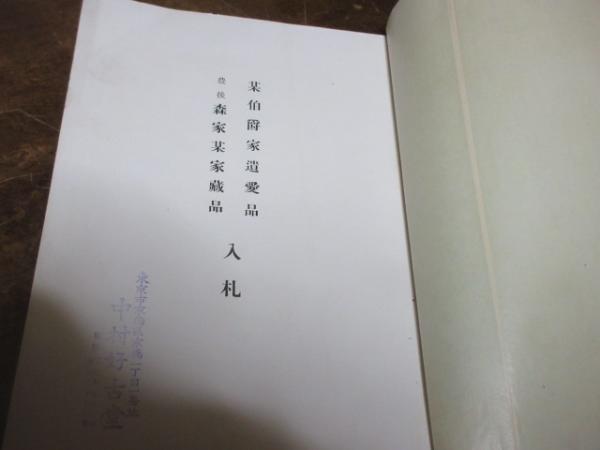 某伯爵家遺愛品
豊後 森家某家藏品
入札
東京市京橋区京橋一丁目一番地
中村好古堂